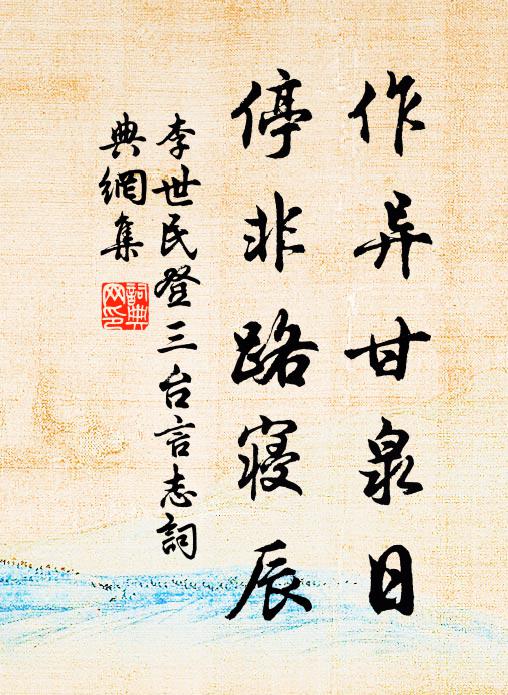 作异甘泉日
停非路寝辰
李世民登三台言志詞
典網集
詞典
网印